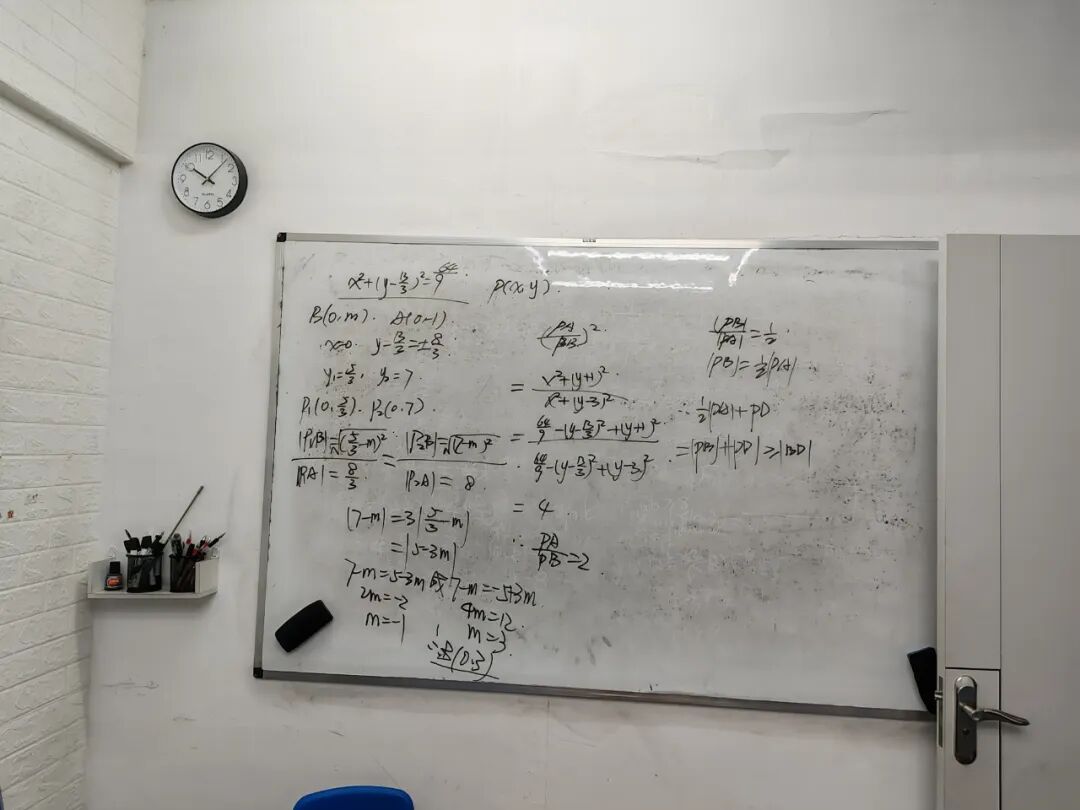 x²+(y-13/3)²=64/9
P(x,y).
B(0,m). A(0,-1).
x=0 y-13/3=±8/3
y₁=5/3, y₂=7
P₁(0,5/3). P₂(0,7)
|P₁B|=√(5/3-m)² / |P₁A|=8/3 = |P₂B|=√(7-m)² / |P₂A|=8
|7-m|=3|5/3-m|
=|5-3m|
7-m=5-3m或7-m=-5+3m
2m=-2 4m=12
m=-1 m=3
∴B(0,3)
(PA/PB)²
= x²+(y+1)² / x²+(y-3)²
= 64/9-(y-13/3)²+(y+1)² / 64/9-(y-13/3)²+(y-3)²
= 4
∴ PA/PB=2
|PB|/|PA|=1/2
|PB|=1/2|PA|
∴ 1/2|PA|+PD
=|PB|+|PD|≥|BD|
12
1
2
3
4
5
6
7
8
9
10
11